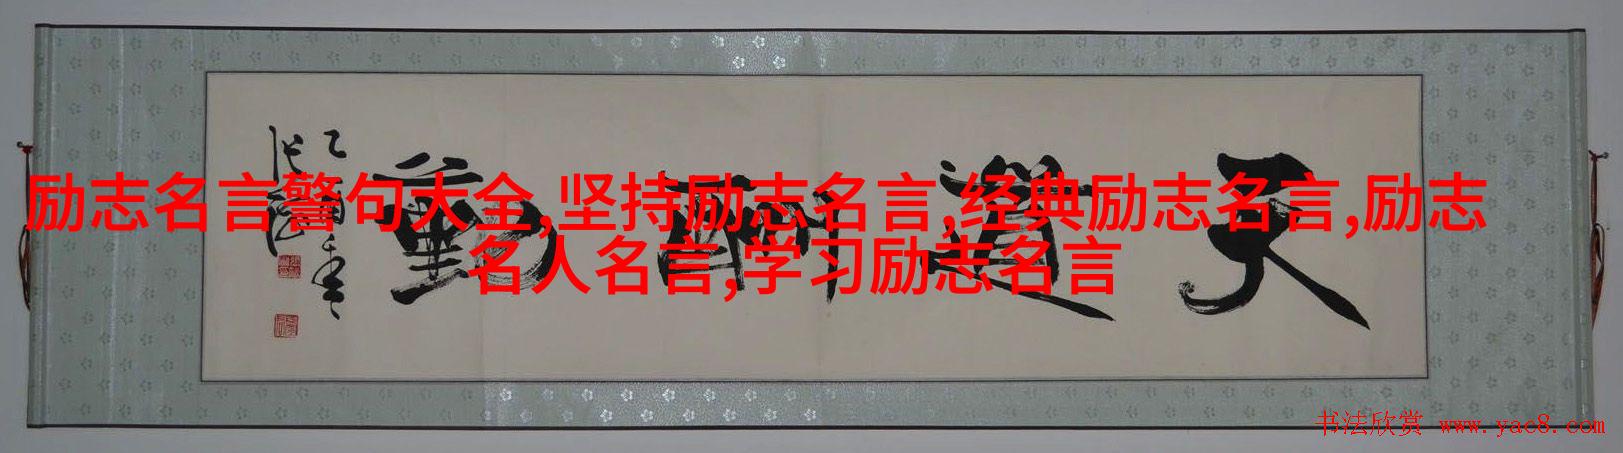 励志名言警句大全,坚持励志名言,经典励志名言,励志
名人名言,学习励志名言
天道酬勤
书法欣赏 www.yac8.com